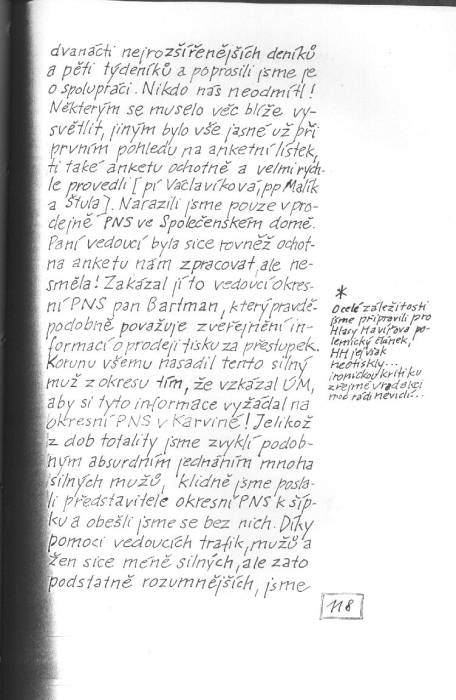 dvanácti nejrozšířenějších deníků
a pěti týdeníků a poprosili jsme je
o spolupráci. Nikdo nás neodmítl!
Některým se muselo věc blíže vy-
světlit, jiným bylo vše jasné už při
prvním pohledu na anketní lístek,
ti také anketu ochotně a velmi rych-
le provedli [pí Václavíková, pp Malík
a Štula]. Narazili jsme pouze v pro-
dejně PNS ve Společenském domě.
Paní vedoucí byla sice rovněž ochot-
na anketu nám zpracovat, ale ne-
směla! Zakázal jí to vedoucí okres-
ní PNS pan Bartman, který pravdě-
podobně považuje zveřejnění in-
formací o prodeji tisku za přestupek.
Korunu všemu nasadil tento silný
muž z okresu tím, že vzkázal ÚM,
aby si tyto informace vyžádal na
okresní PNS v Karviné! Jelikož
z dob totality jsme zvyklí podob-
ným absurdním jednáním mnoha
silných mužů, klidně jsme posla-
li představitele okresní PNS k šíp-
ku a obešli jsme se bez nich. Díky
pomoci vedoucích trafik, mužů a
žen sice méně silných, ale zato
podstatně rozumnějších, jsme
*
O celé záležitosti
jsme připravili pro
Hlasy Havířova po-
lemický článek,
HH jej však
neotiskly...
ironickou kritiku
zřejmě v redakci
moc rádi nevidí...
118